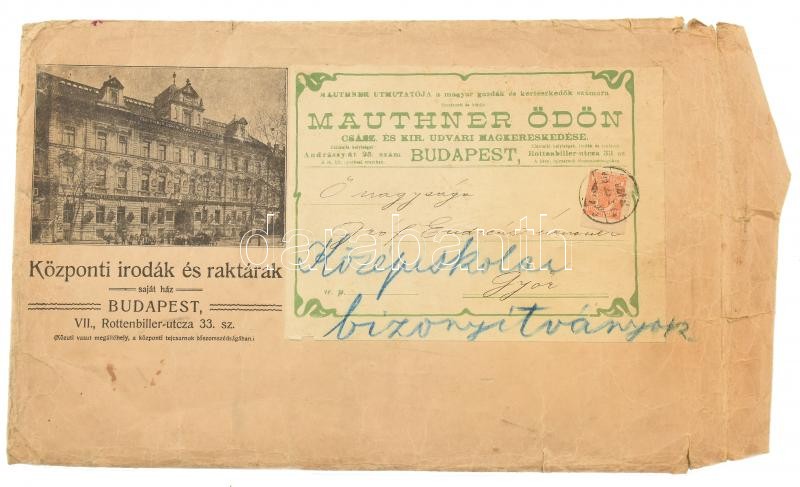 Központi irodák és raktárak
saját ház
BUDAPEST,
VII., Rottenbiller-utcza 33. sz.
(Közuti vasut megállóhely, a központi tejcsarnok tőszomszédságában.)
MAUTHNER UTMUTATÓJA a magyar gazdák és kertészkedők számára
MAUTHNER ÖDÖN
CSÁSZ. ÉS KIR. UDVARI MAGKERESKEDÉSE.
Andrássy-út 23. szám
BUDAPEST,
Rottenbiller-utcza 33. sz.
Ő nagysága
Gróf
Győr
Középiskolai
bizonyítványok
darabanth